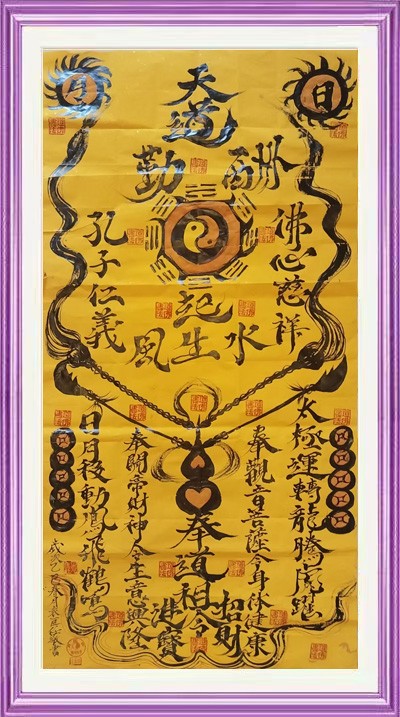 日
月
天道
酬勤
佛心慈祥
孔子仁義
風生水起
太極運轉龍騰虎躍
奉觀音菩薩令身体健康
奉道祖令
招財
進寶
奉關帝財神令生意興隆
日月後動鳳飛鶴鳴